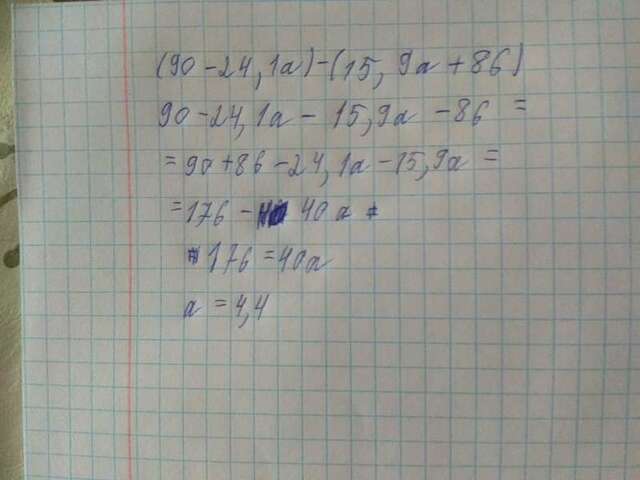 (90-24,1a)-(15,9a+86)
90-24,1a-15,9a-86=
=90+86-24,1a-15,9a=
=176-40a
176=40a
a=4,4